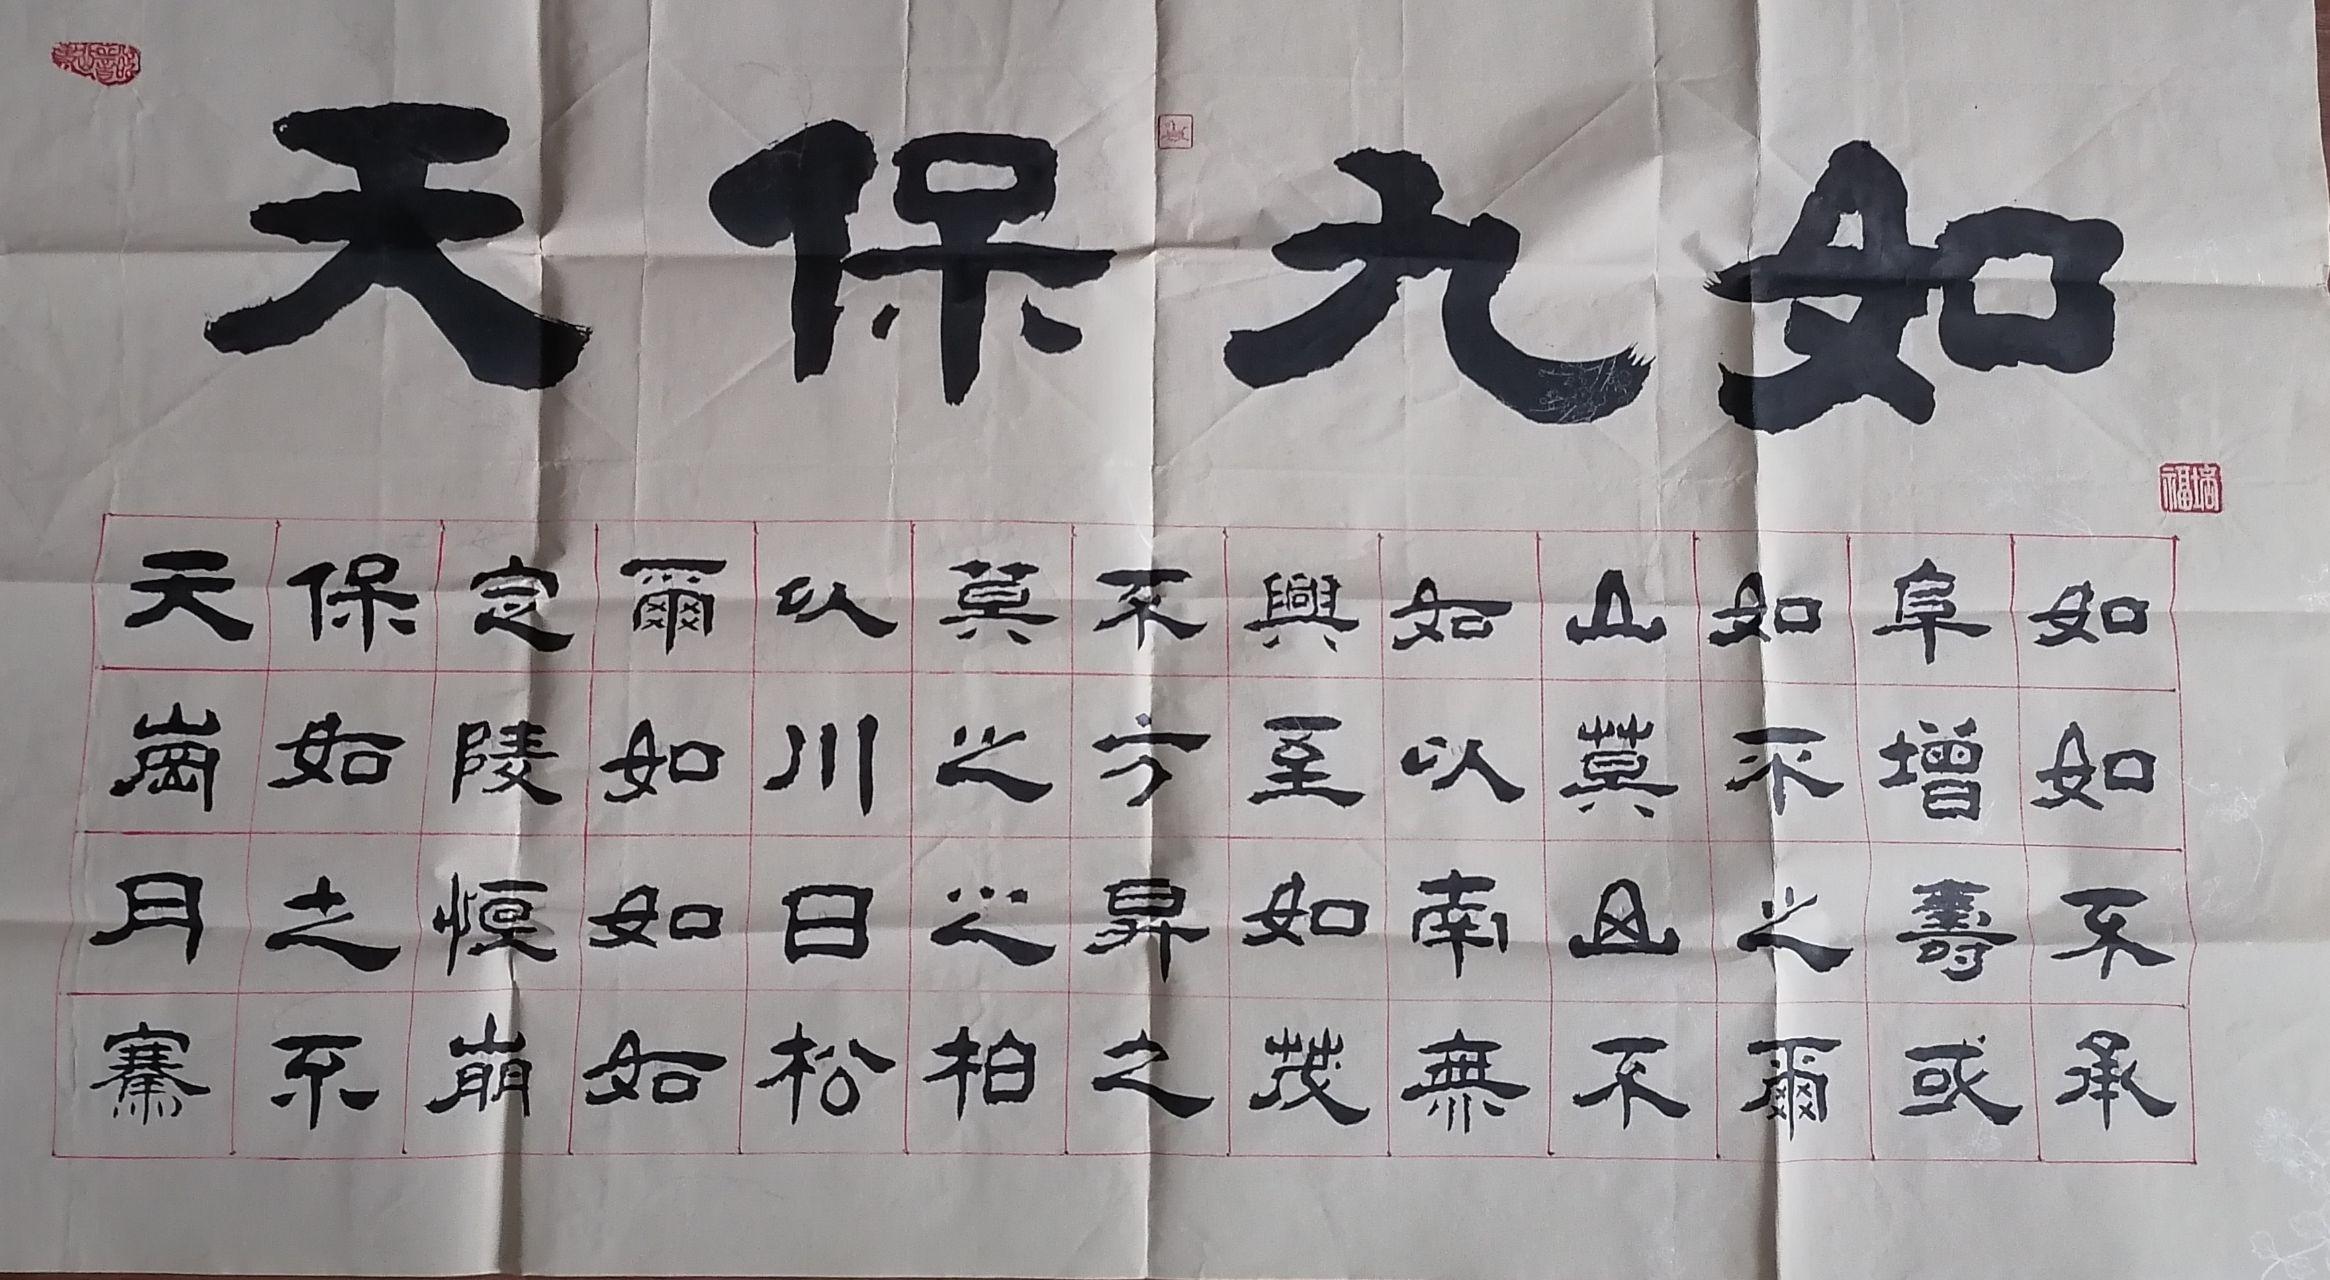 天保九如
天保定爾以莫不興如山如阜如
崗如陵如川之方至以莫不增如
月之恒如日之昇如南山之壽不
騫不崩如松柏之茂無不爾或承